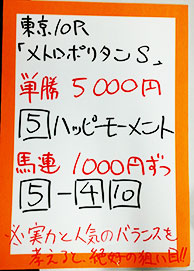 東京10R
「メトロポリタンS」
単勝 5000円
5 ハッピーモーメント
馬連 1000円ずつ
5-4 10
※実力と人気のバランスを
考えると絶好の狙い目!!